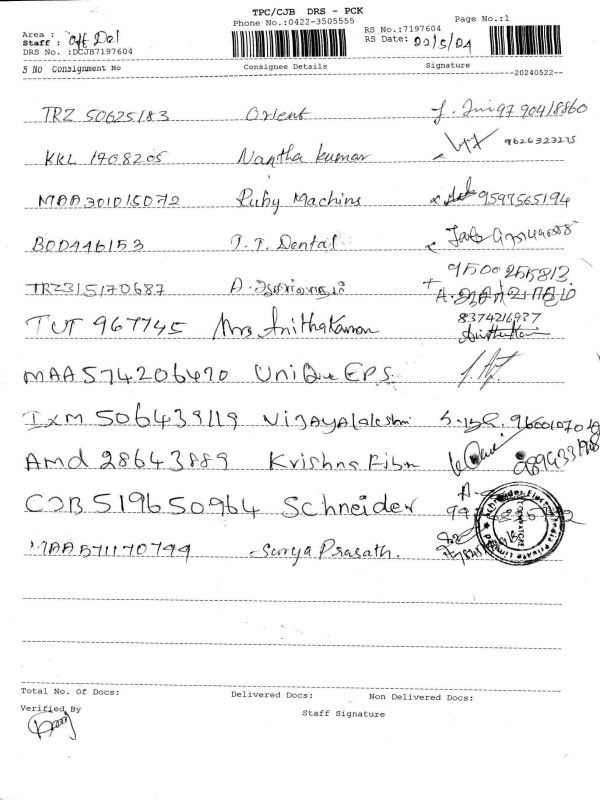 TPC/CJB DRS - PCK
Phone No.:0422-3505555 Page No.:1
Area : Off Del RS No.:7197604
Staff : RS Date: 22/5/24
DRS No. :DCJB7197604
S No Consignment No Consignee Details Signature
20240522
TRZ 50625183 Orient 97 90418860
KKL 1908205 Nantha kumar 9626323275
MAA301015072 Ruby Machins 9597565194
BOD446153 T.T. Dental
TRZ315170687 9500255813
TUT 967745 Mrs Anitha Kannan 8374216937
MAA574206470 UniQue EPS
IXM 506439119 Vijayalakshmi
Amd 28643889 Krishna Fibn
CJB519650964 Schneider
MAA571170799 Surya Prasath.
Total No. Of Docs: Delivered Docs: Non Delivered Docs:
Verified By Staff Signature